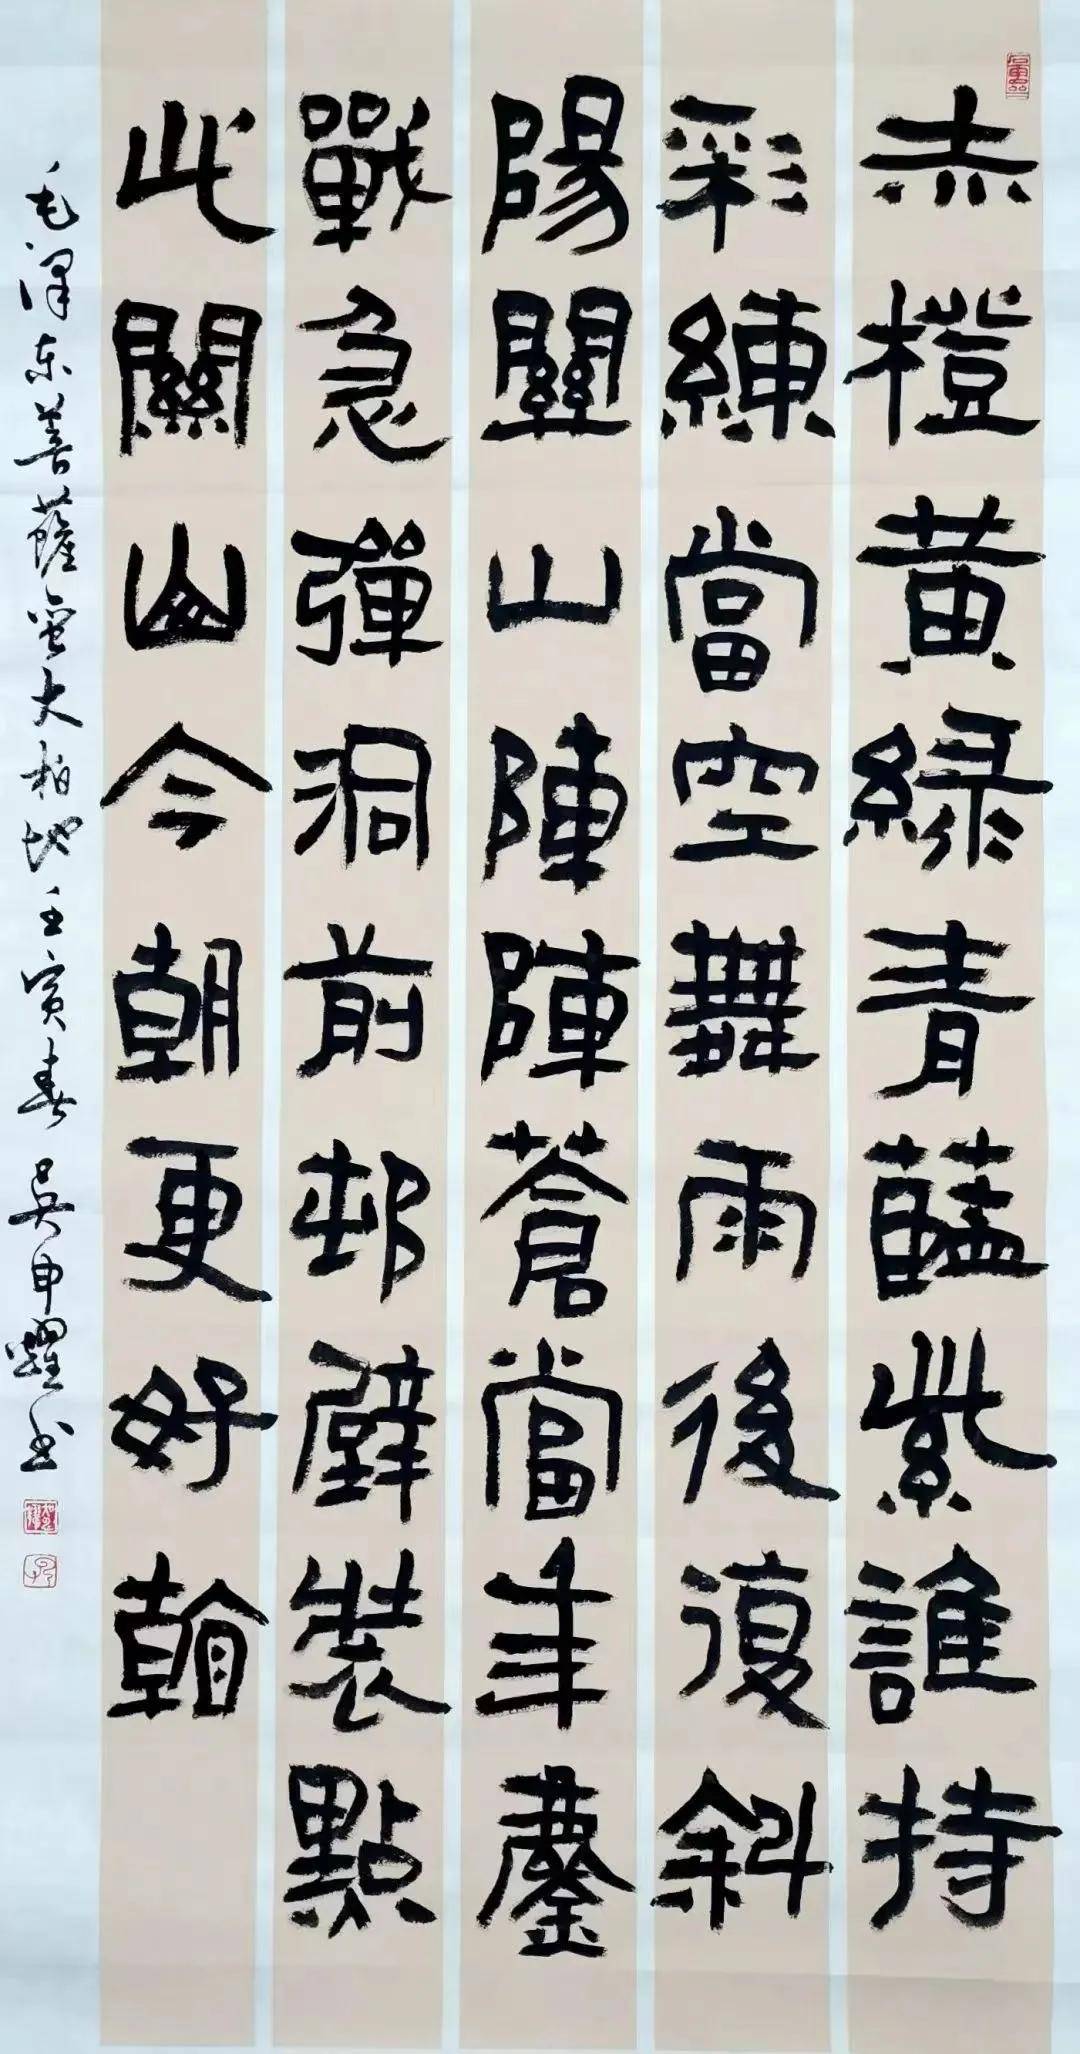 赤橙黄緑青藍紫誰持
彩練當空舞雨後復斜
陽關山陣陣蒼當年鏖
戰急彈洞前邨壁裝點
此關山今朝更好看
毛澤东菩薩蛮大柏地壬寅春吴申耀书